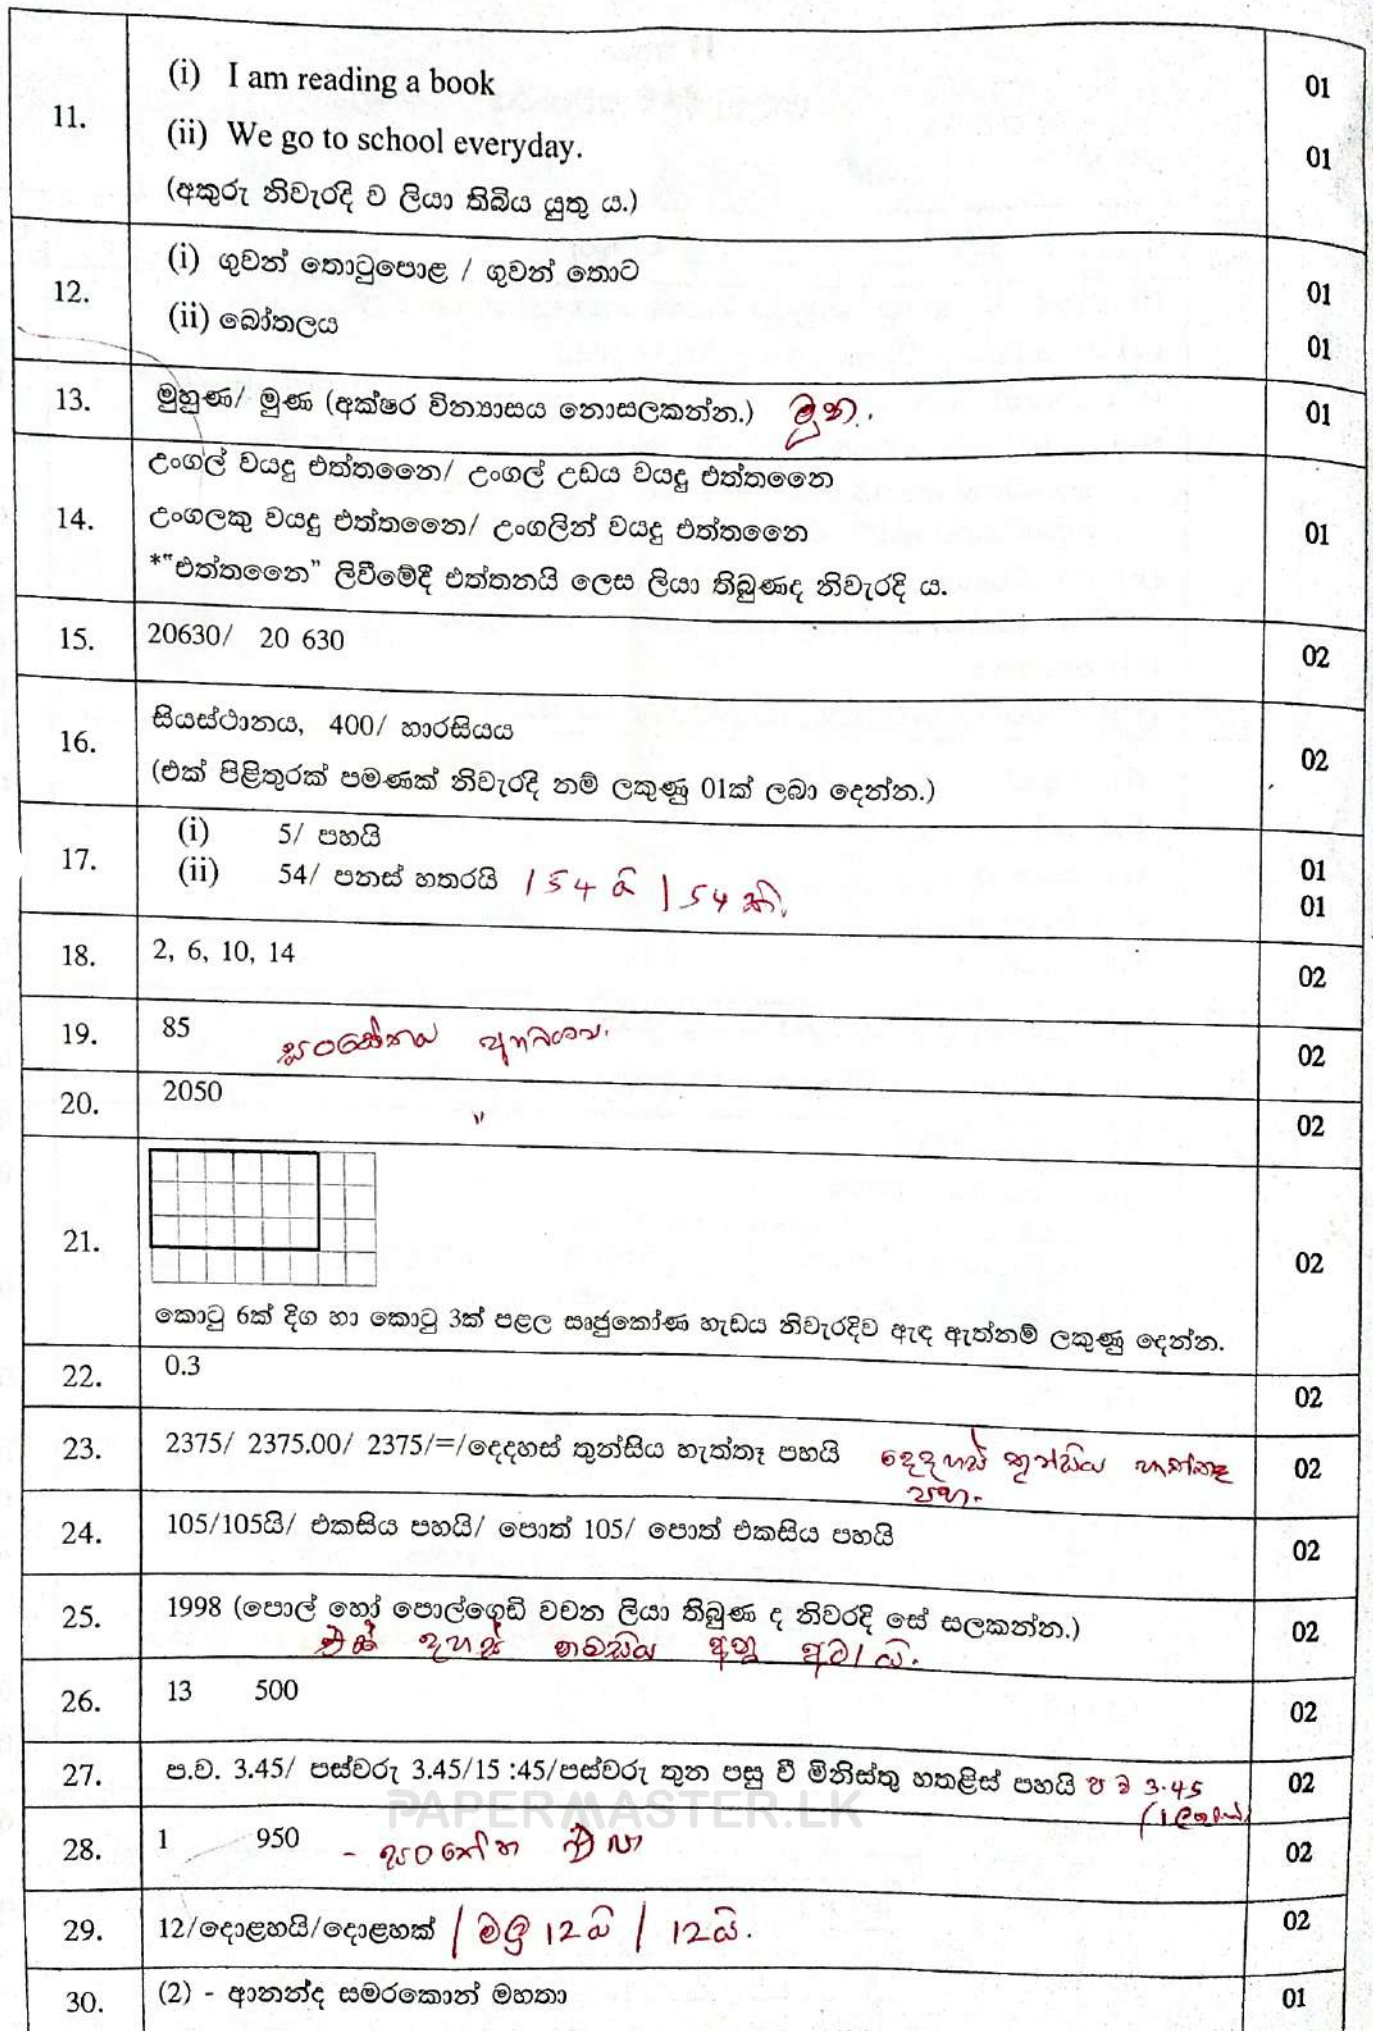 11.
(i) I am reading a book
01
(ii) We go to school everyday.
01
(අකුරු නිවැරදි ව ලියා තිබිය යුතු ය.)
12.
(i) ගුවන් තොටුපොළ / ගුවන් තොට
01
(ii) බෝතලය
01
13.
මුහුණ/ මුණ (අක්ෂර වින්‍යාසය නොසලකන්න.) මුන.
01
14.
උංගල් වයදු එත්තනෛ/ උංගල් උඩය වයදු එත්තනෛ
උංගලකු වයදු එත්තනෛ/ උංගලින් වයදු එත්තනෛ
01
*"එත්තනෛ" ලිවීමේදී එත්තනයි ලෙස ලියා තිබුණද නිවැරදි ය.
15.
20630/ 20 630
02
16.
සියස්ථානය, 400/ හාරසියය
02
(එක් පිළිතුරක් පමණක් නිවැරදි නම් ලකුණු 01ක් ලබා දෙන්න.)
17.
(i) 5/ පහයි
01
(ii) 54/ පනස් හතරයි / 54 යි / 54 කි.
01
18.
2, 6, 10, 14
02
19.
85
02
20.
2050 "
02
21.
02
කොටු 6ක් දිග හා කොටු 3ක් පළල සෘජුකෝණ හැඩය නිවැරදිව ඇඳ ඇත්නම් ලකුණු දෙන්න.
22.
0.3
02
23.
2375/ 2375.00/ 2375/=/දෙදහස් තුන්සිය හැත්තෑ පහයි දෙදහස් තුන්සිය හැත්තෑ
පහ.
02
24.
105/105යි/ එකසිය පහයි/ පොත් 105/ පොත් එකසිය පහයි
02
25.
1998 (පොල් හෝ පොල්ගෙඩි වචන ලියා තිබුණ ද නිවරදි සේ සලකන්න.)
එක් දහස් නවසිය අනූ අට/යි.
02
26.
13 500
02
27.
ප.ව. 3.45/ පස්වරු 3.45/15 :45/පස්වරු තුන පසු වී මිනිස්තු හතළිස් පහයි ප ව 3.45
02
PAPERMASTER.LK
28.
1 950
02
29.
12/දොළහයි/දොළහක් / මල් 12යි / 12යි.
02
30.
(2) - ආනන්ද සමරකොන් මහතා
01